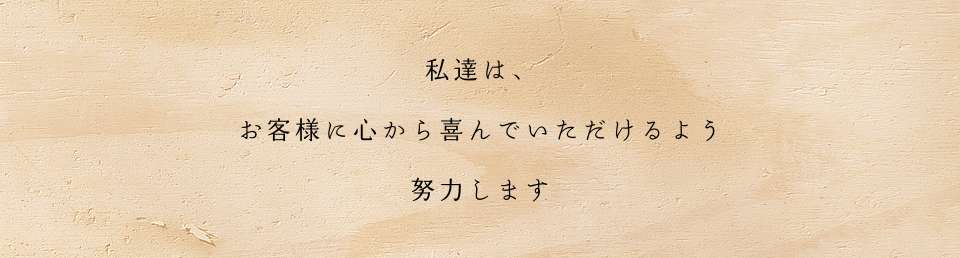 私達は、
お客様に心から喜んでいただけるよう
努力します